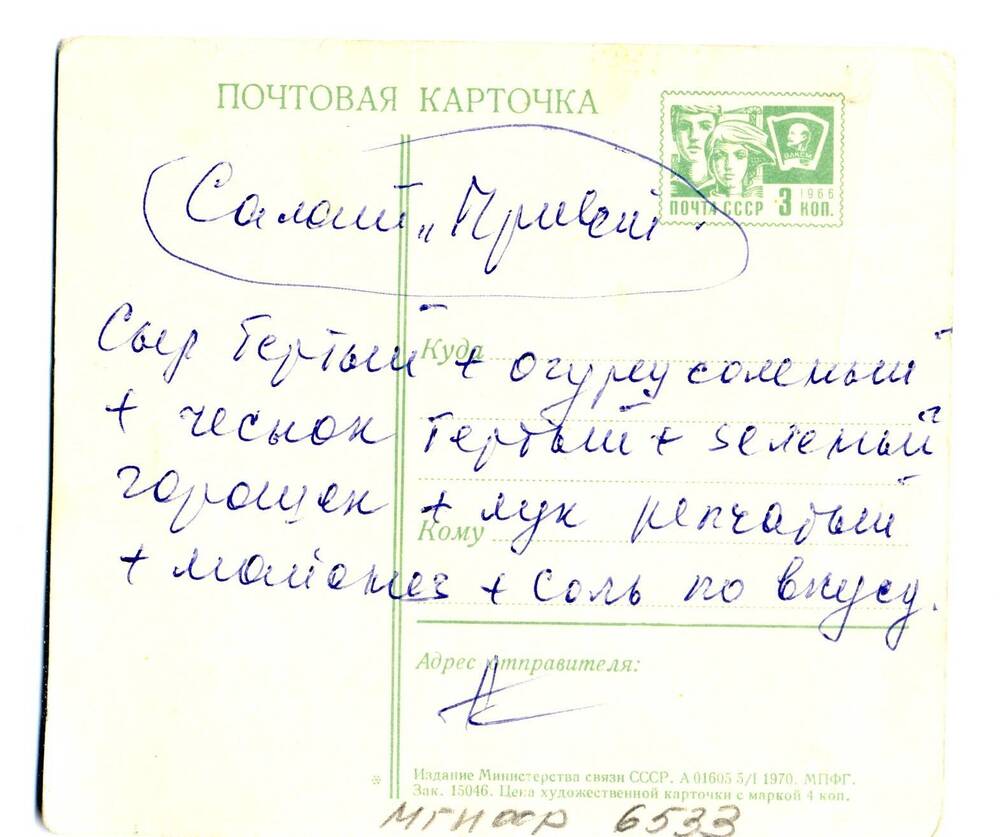 ПОЧТОВАЯ КАРТОЧКА
ВЛКСМ
1966
ПОЧТА СССР 3 КОП.
Салат „Привет"
Куда
Сыр тертый + огурец соленый
+ чеснок тертый + зеленый
горошек + лук репчатый
Кому
+ майонез + соль по вкусу.
Адрес отправителя:
Издание Министерства связи СССР. А 01605 5/I 1970. МПФГ.
Зак. 15046. Цена художественной карточки с маркой 4 коп.
6533